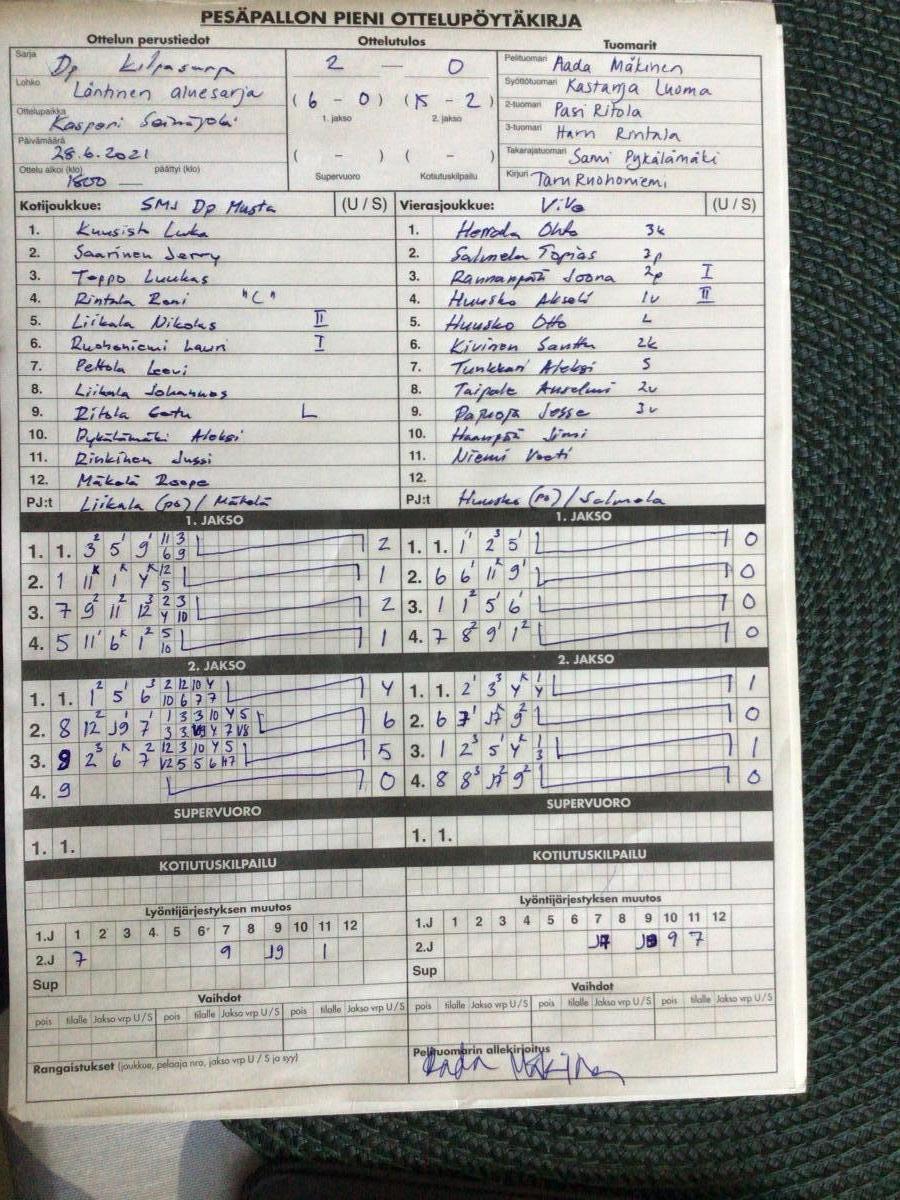 PESÄPALLON PIENI OTTELUPÖYTÄKIRJA
Ottelun perustiedot
Sarja Dp
Lohko Läntinen aluesarja
Ottelupaikka Kaspori
Päivämäärä 28.6.2021
Ottelu alkoi (klo) 1800 — päättyi (klo)
Ottelutulos
2 — 0
(6 - 0) (15 - 2)
1. jakso 2. jakso
( - ) ( - )
Supervuoro Kotiutuskilpailu
Tuomarit
Pelituomari Aada Mäkinen
Syöttötuomari Kastanja Luoma
2-tuomari Pasi Ritola
3-tuomari Harri Rintala
Takarajatuomari Sami Pykälämäki
Kirjuri Taru Ruohoniemi
Kotijoukkue: SMJ Dp Musta (U / S)
1. Kuusisto Luka
2. Saarinen Jerry
3. Teppo Luukas
4. Rintala Roni "C"
5. Liikala Nikolas II
6. Ruohoniemi Lauri I
7. Peltola Leevi
8. Liikala Johannes
9. Ritola L
10. Pykälämäki Aleksi
11. Rinkinen Jussi
12. Mäkelä Roope
PJ:t Liikala (po) / Mäkelä
Vierasjoukkue: ViVe (U / S)
1. Herrala Ohto 3k
2. Salmela Topias 3p
3. Rannanpää Joona 2p I
4. Huusko Akseli 1v II
5. Huusko Otto L
6. Kivinen Santtu 2k
7. Tunkkari Aleksi S
8. Taipale Anselmi 2v
9. Jesse 3v
10. Haanpää Jimi
11. Niemi Veeti
12.
PJ:t Huusko (po) / Salmela
1. JAKSO
1. 1. 3² 5¹ 9¹ 11 3 6 9 2
2. 1 11ᴷ 1ᴷ 4ᴷ 12 5 1
3. 7 9² 11² 12³ 2 3 4 10 2
4. 5 11¹ 6ᴷ 1² 5 10 1
1. JAKSO
1. 1. 1¹ 2³ 5¹ 0
2. 6 6¹ 11ᴷ 9¹ 0
3. 1 1² 5¹ 6¹ 0
4. 7 8² 9¹ 1² 0
2. JAKSO
1. 1. 1² 5¹ 6³ 2 12 10 4 10 6 7 7 4
2. 8 12² J9¹ 7¹ 1 3 3 10 4 5 6
3. 9 2³ 6ᴷ 7² 12 3 10 4 5 5
4. 9 0
2. JAKSO
1. 1. 2¹ 3³ 4ᴷ 1 4 1
2. 6 7¹ J7ᴷ 9² 0
3. 1 2³ 5¹ 4ᴷ 1 3 1
4. 8 8³ J7² 9² 0
SUPERVUORO
1. 1.
SUPERVUORO
1. 1.
KOTIUTUSKILPAILU
KOTIUTUSKILPAILU
Lyöntijärjestyksen muutos
1.J 1 2 3 4 5 6 7 8 9 10 11 12
2.J 7 9 J9 1
Sup
Lyöntijärjestyksen muutos
1.J 1 2 3 4 5 6 7 8 9 10 11 12
2.J J7 9 7
Sup
Vaihdot
pois tilalle Jakso vrp U/S pois tilalle Jakso vrp U/S pois tilalle Jakso vrp U/S
Vaihdot
pois tilalle Jakso vrp U/S pois tilalle Jakso vrp U/S pois tilalle Jakso vrp U/S
Rangaistukset (joukkue, pelaaja nro, jakso vrp U / S ja syy)
Pelituomarin allekirjoitus
Aada Mäkinen